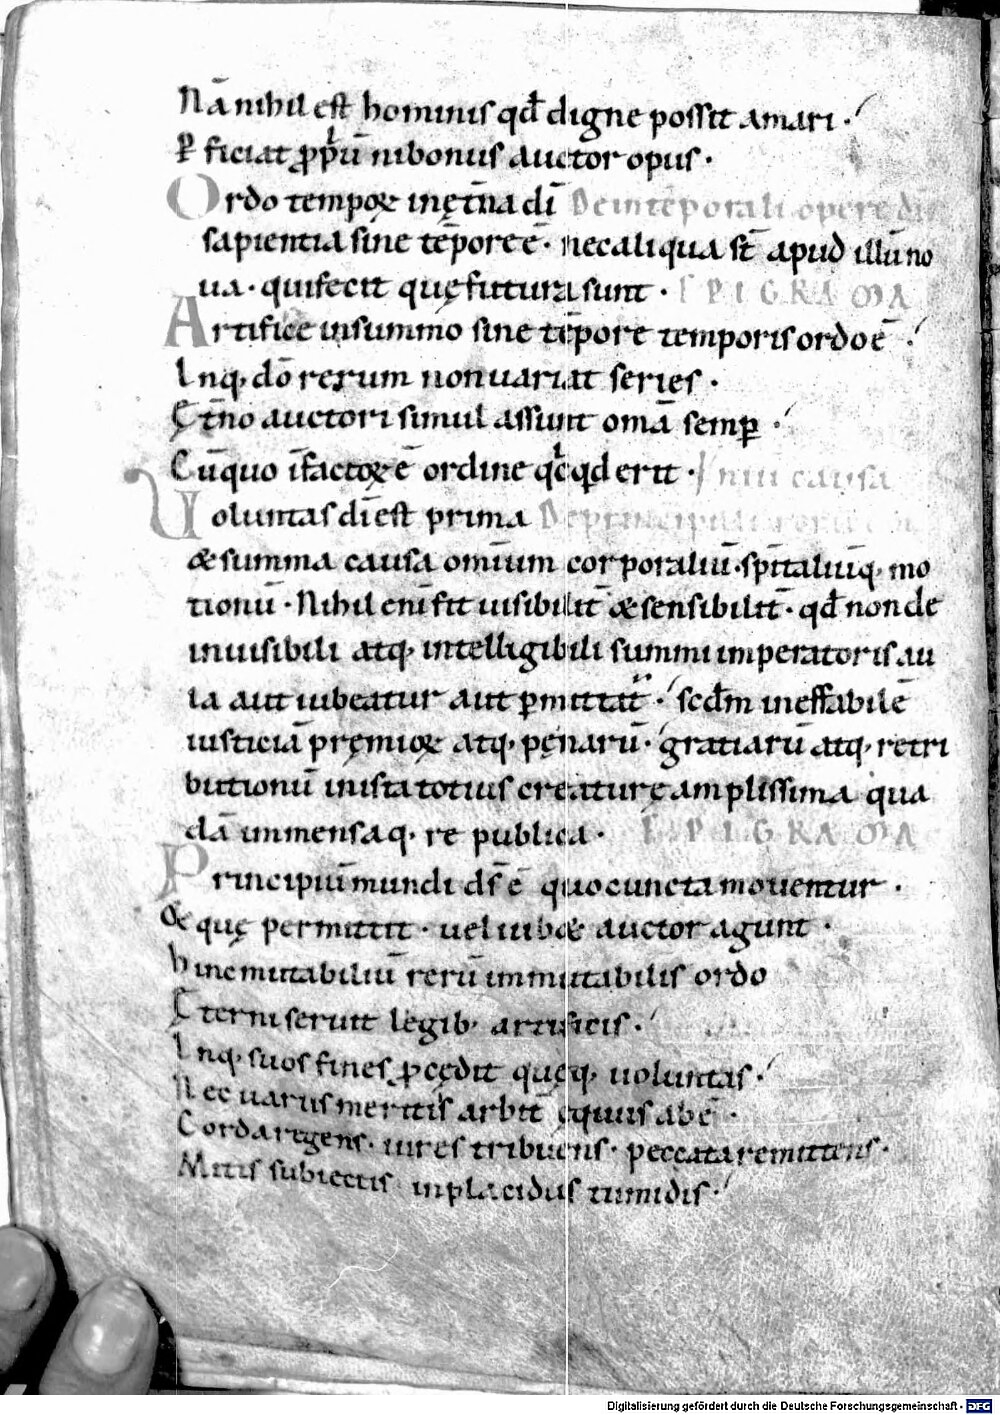 Nā nihil est hominis qđ digne possit amari·
ꝑficiat ꝓpriū ni bonus auctor opus·
Ordo tempoꝝ in ęt̄na dī De intēporali opere dī
sapientia sine tēpore ē· nec aliqua sī apud illū no
ua· qui fecit quę futura sunt· EPIGRAMA
Artifice in summo sine tēpore temporis ordo ē·
Inq; dō rerum non uariat series·
Ęt̄no auctori simul assunt omā semꝑ·
Cū quo ī factoꝝ ē ordine qcqd erit· niū causa
Uoluntas dī est prima De principali
& summa causa omīum corporaliū· spīталiūq; mo
tionū· Nihil enī fit uisibilit̄ & sensibilit̄· qđ non de
inuisibili atq; intelligibili summi imperatoris au
la aut iubeatur aut ꝑmittat̄· scdm ineffabilē
iusticiā pręmioꝝ atq; pęnarū· gratiarū atq; retri
butionū in ista totius creaturę amplissima qua
dā immensaq; re publica· EPIGRAMA
Principiū mundi ds̄ ē quo cuncta mouentur·
& quę permittit· uel iub& auctor agunt·
hinc mutabiliū rerū immutabilis ordo
Ęterni seruit legib; artificis·
Inq; suos fines ꝓcędit quęq; uoluntas·
Nec uariis meritis arbit̄ ęquus abē·
Corda regens· uires tribuens· peccata remittens·
Mitis subiectis inplacidus tumidis·
Digitalisierung gefördert durch die Deutsche Forschungsgemeinschaft - DFG